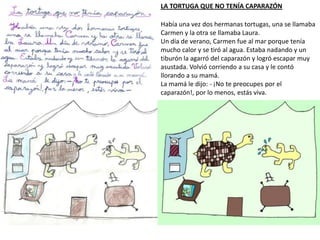 La tortuga que no tenía caparazón.
Había una vez dos hermanas tortugas,
una se llamaba Carmen y la otra se llamaba
Laura. Un día de verano, Carmen fue al
mar porque tenía mucho calor y se tiró al
agua. Estaba nadando y un tiburón la agarró del
caparazón y logró escapar muy asustada. Volvió
corriendo a su casa y le contó llorando a su mamá.
La mamá le dijo: - ¡No te preocupes por el
caparazón!, por lo menos, estás viva.
LA TORTUGA QUE NO TENÍA CAPARAZÓN
Había una vez dos hermanas tortugas, una se llamaba
Carmen y la otra se llamaba Laura.
Un día de verano, Carmen fue al mar porque tenía
mucho calor y se tiró al agua. Estaba nadando y un
tiburón la agarró del caparazón y logró escapar muy
asustada. Volvió corriendo a su casa y le contó
llorando a su mamá.
La mamá le dijo: - ¡No te preocupes por el
caparazón!, por lo menos, estás viva.